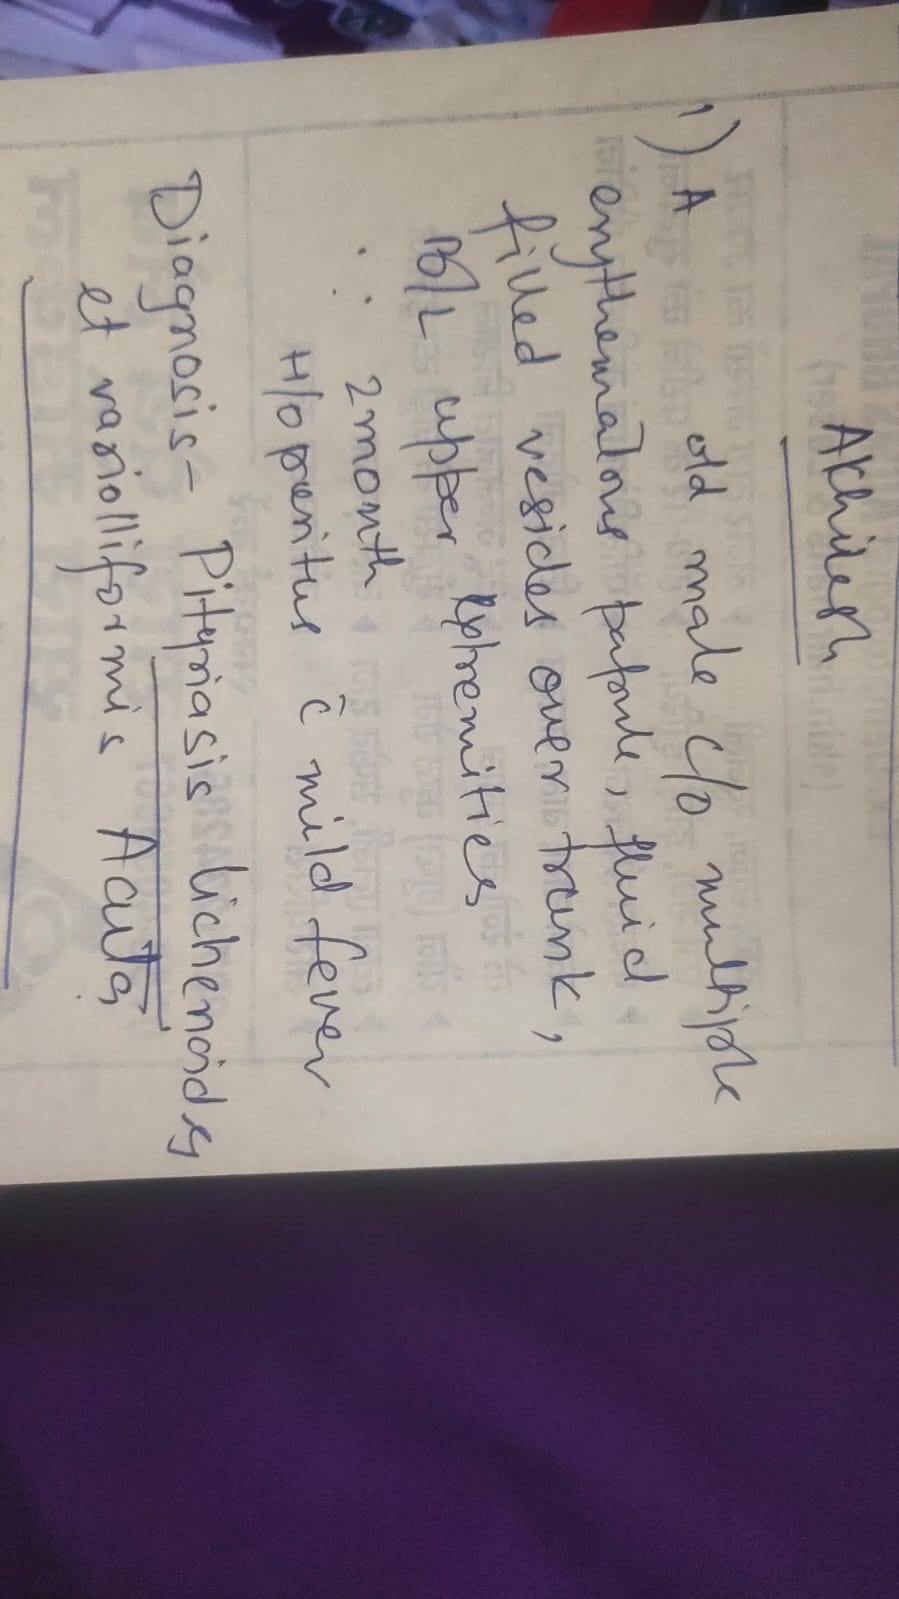 Akhilesh
1) A old male c/o multiple
erythematous papule, fluid
filled vesicles over trunk,
B/L upper extremities
∴ 2 month
H/o pruritus c̄ mild fever
Diagnosis- Pityriasis lichenoides
et varioliformis Acuta